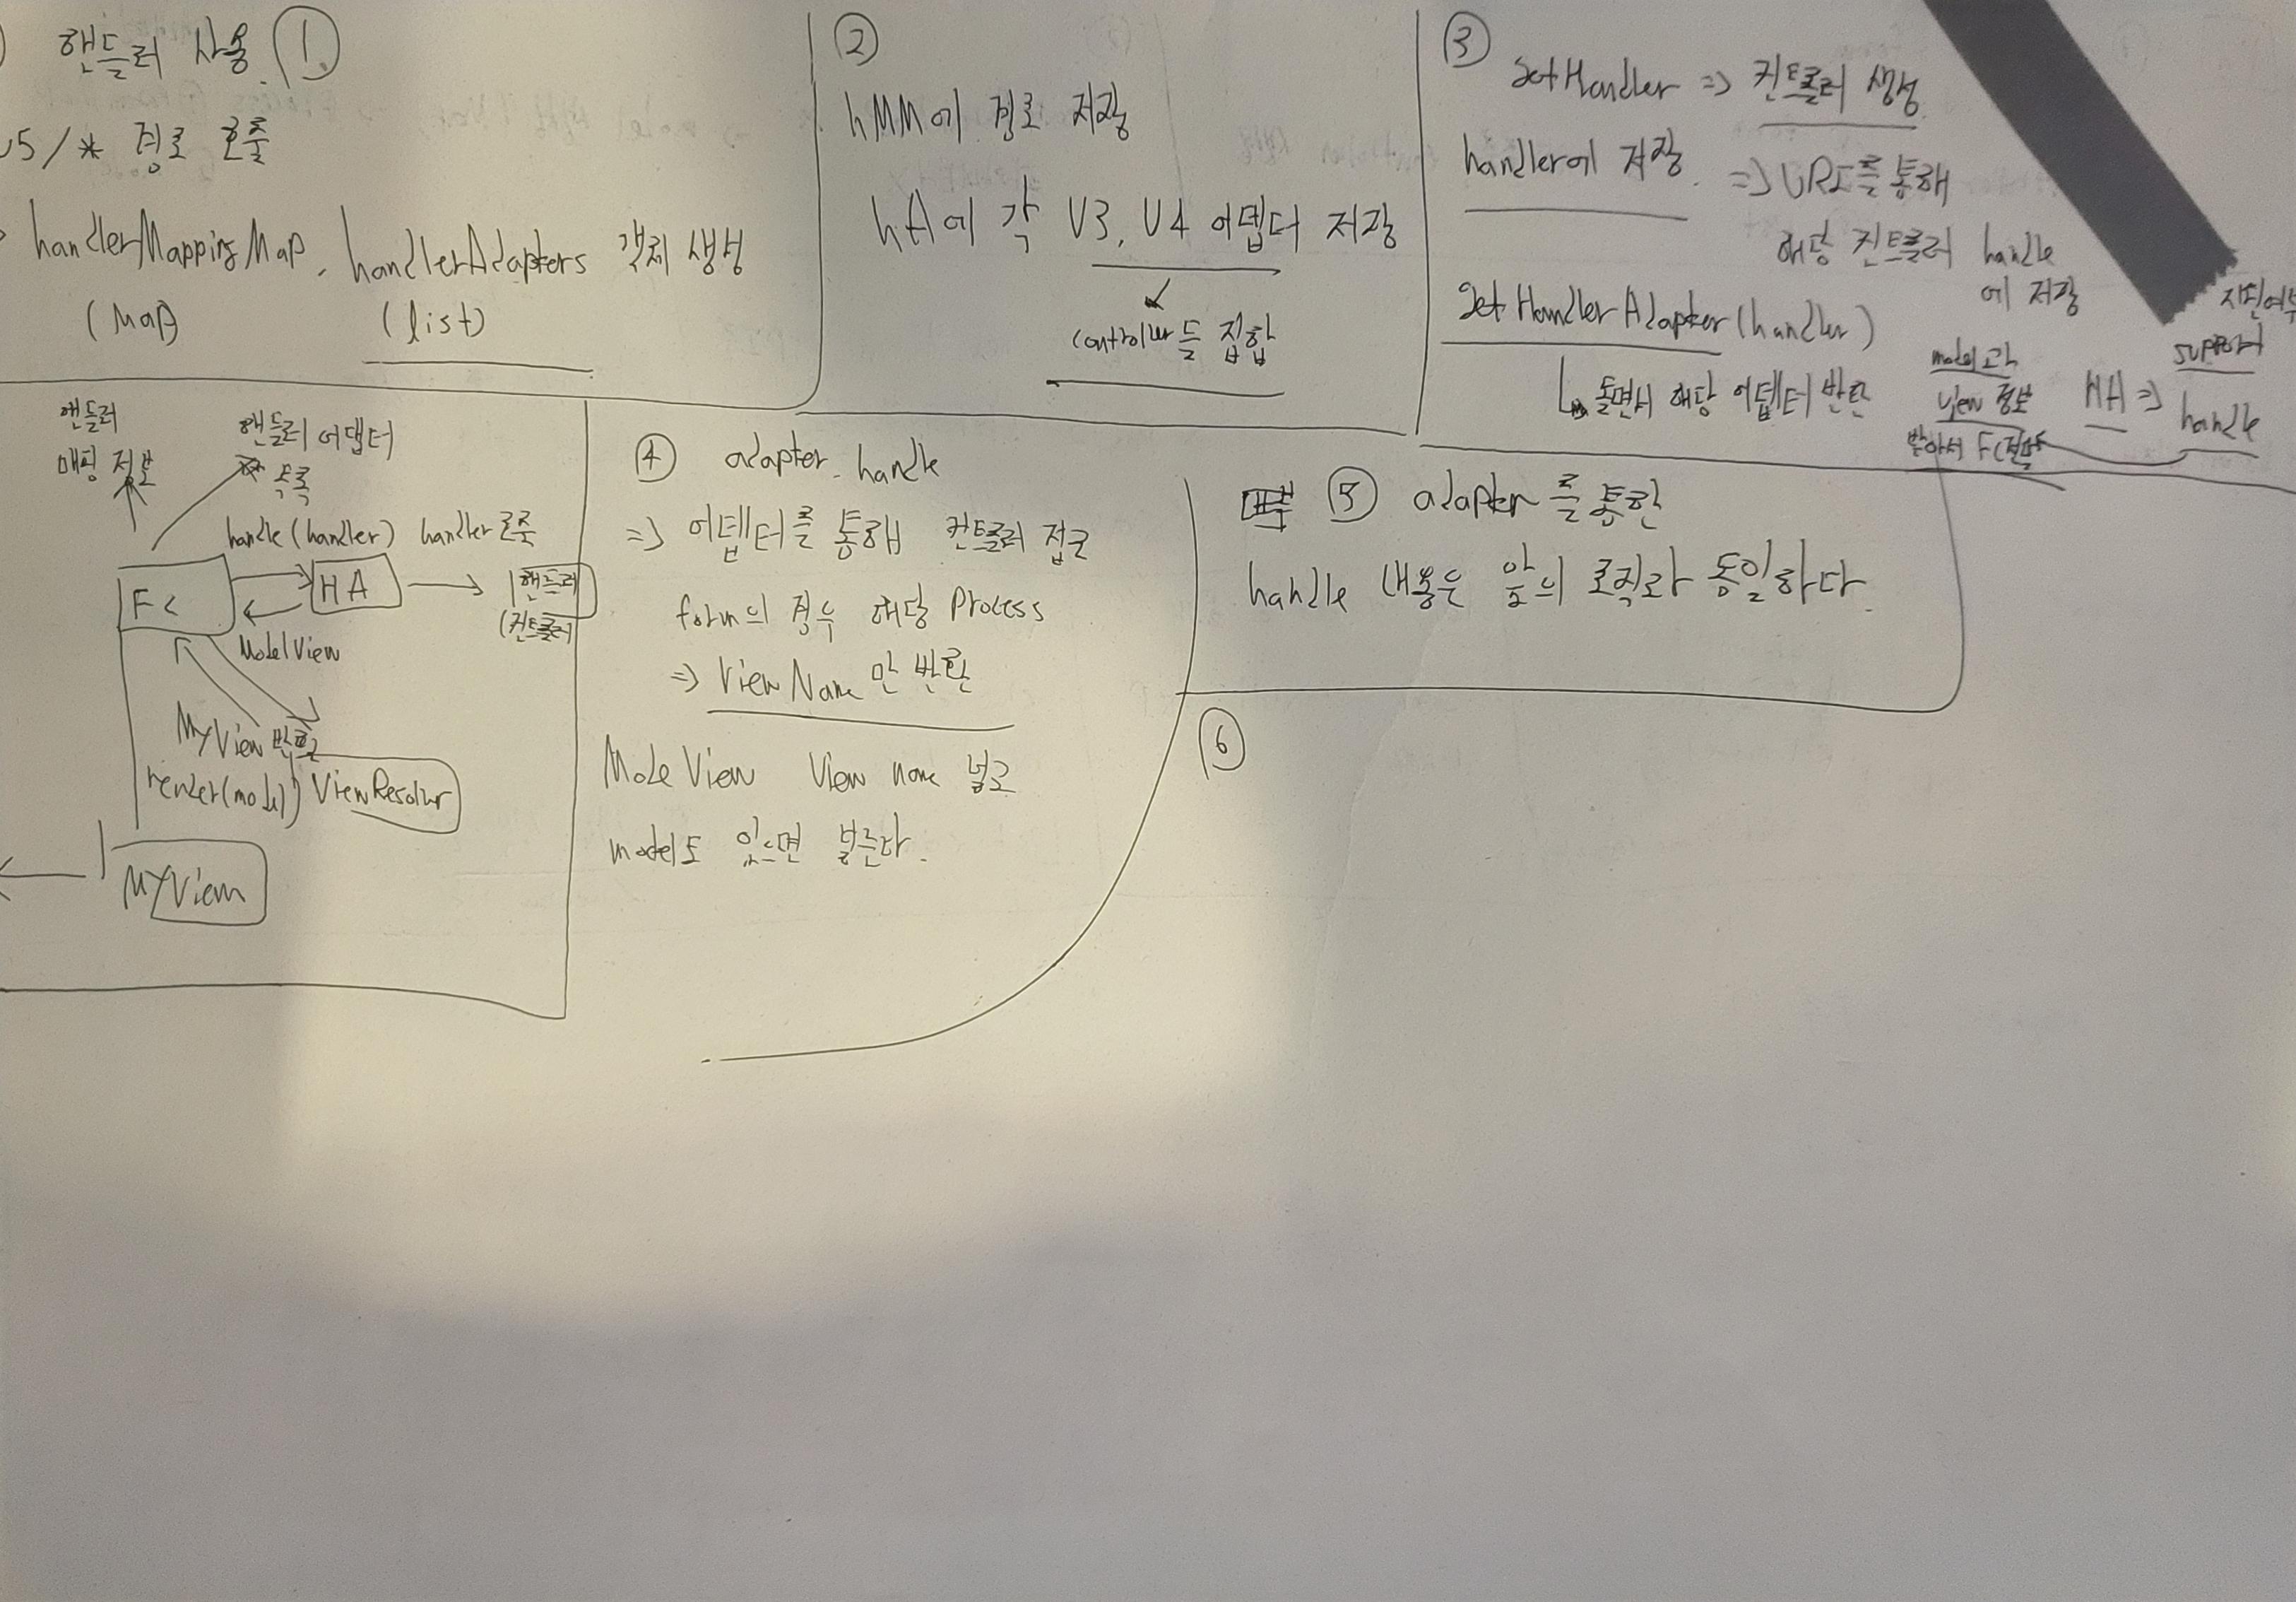 핸들러 사용 ①
v5/* 경로 호출
handlerMappingMap, handlerAdapters 객체 생성
(Map) (list)
②
hMM에 경로 저장
hA에 각 V3, V4 어뎁터 저장
controller들 집합
③
getHandler => 컨트롤러 생성
handler에 저장 => URI를 통해
해당 컨트롤러 handle
에 저장
getHandlerAdapter(handler)
돌면서 해당 어뎁터 반환
model과
view 정보
받아서 FC전달
HA =>
지원여부
support
handle
핸들러
매핑 정보
핸들러 어댑터
목록
handle(handler) handler 호출
FC
HA
핸들러
(컨트롤러
ModelView
MyView 반환
render(model) ViewResolver
MyView
④ adapter.handle
=> 어뎁터를 통해 컨트롤러 접근
form의 경우 해당 process
=> ViewName만 반환
ModeView View name 넣고
model도 있으면 넣는다.
⑤ adapter를 통한
handle 내용은 앞의 로직과 동일하다.
⑥